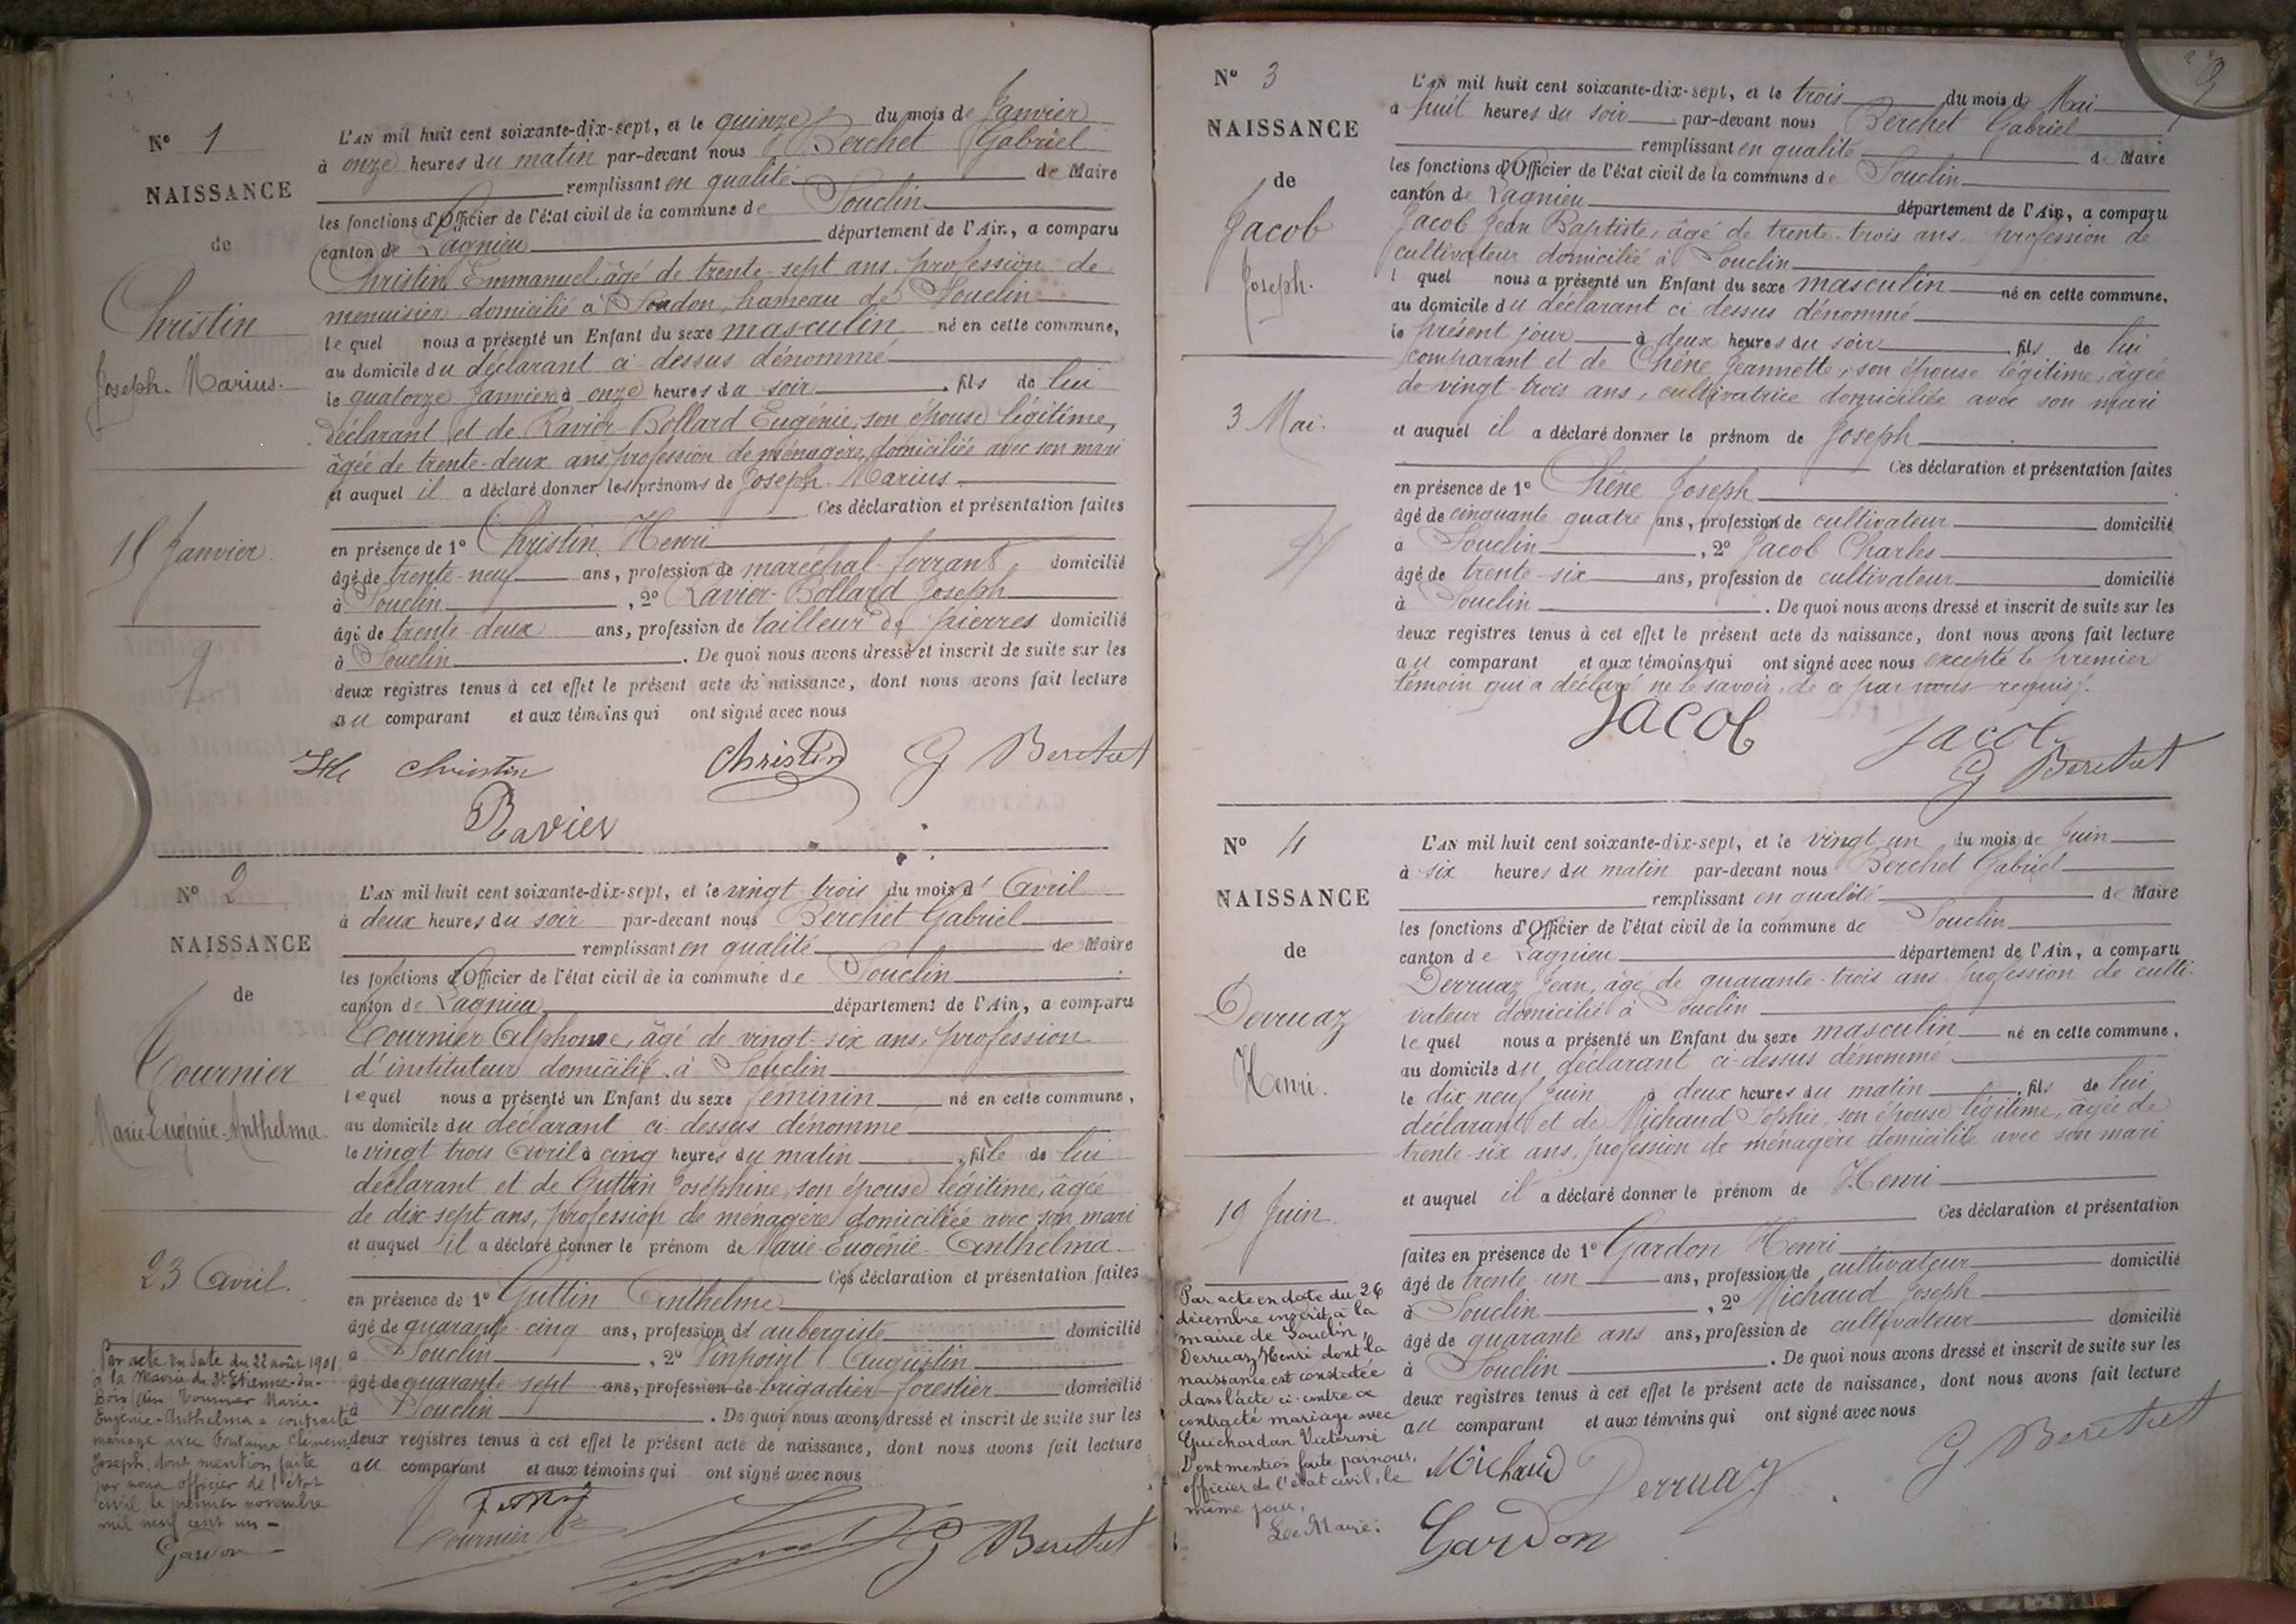 N° 1
NAISSANCE
de
Christin
Joseph-Marius.
15 Janvier.
L'AN mil huit cent soixante-dix-sept, et le quinze du mois de Janvier
à onze heures du matin par-devant nous Berchet Gabriel
remplissant en qualité de Maire
les fonctions d'Officier de l'état civil de la commune de Souclin
canton de Lagnieu département de l'Ain, a comparu
Christin Emmanuel, âgé de trente-sept ans, profession de
menuisier, domicilié à Soudon, hameau de Souclin
lequel nous a présenté un Enfant du sexe masculin né en cette commune,
au domicile du déclarant ci-dessus dénommé
le quatorze Janvier à onze heures du soir, fils de lui
déclarant et de Ravier-Bollard Eugénie, son épouse légitime,
âgée de trente-deux ans, profession de ménagère, domiciliée avec son mari
et auquel il a déclaré donner les prénoms de Joseph-Marius.
Ces déclaration et présentation faites
en présence de 1° Christin Henri
âgé de trente-neuf ans, profession de maréchal-ferrant, domicilié
à Souclin, 2° Ravier-Bollard Joseph
âgé de trente-deux ans, profession de tailleur de pierres domicilié
à Souclin. De quoi nous avons dressé et inscrit de suite sur les
deux registres tenus à cet effet le présent acte de naissance, dont nous avons fait lecture
au comparant et aux témoins qui ont signé avec nous
christin Christin G Berchet
Ravier
N° 2
NAISSANCE
de
Tournier
Marie-Eugénie-Anthelma.
23 Avril.
Par acte en date du 22 août 1901
à la Mairie de St Etienne-du-
Bois (Ain) Tournier Marie-
Eugénie-Anthelma a contracté
mariage avec Fontaine Clément
Joseph, dont mention faite
par nous officier de l'état
civil le premier novembre
mil neuf cent un -
Gardon
L'AN mil huit cent soixante-dix-sept, et le vingt-trois du mois d'Avril
à deux heures du soir par-devant nous Berchet Gabriel
remplissant en qualité de Maire
les fonctions d'Officier de l'état civil de la commune de Souclin
canton de Lagnieu département de l'Ain, a comparu
Tournier Alphonse, âgé de vingt-six ans, profession
d'instituteur domicilié à Souclin
lequel nous a présenté un Enfant du sexe féminin né en cette commune,
au domicile du déclarant ci-dessus dénommé
le vingt trois Avril à cinq heures du matin, fille de lui
déclarant et de Guttin Joséphine, son épouse légitime, âgée
de dix-sept ans, profession de ménagère domiciliée avec son mari
et auquel il a déclaré donner le prénom de Marie-Eugénie-Anthelma.
Ces déclaration et présentation faites
en présence de 1° Guttin Anthelme
âgé de quarante-cinq ans, profession d'aubergiste domicilié
à Souclin, 2° Vinpoint Augustin
âgé de quarante-sept ans, profession de brigadier-forestier domicilié
à Souclin. De quoi nous avons dressé et inscrit de suite sur les
deux registres tenus à cet effet le présent acte de naissance, dont nous avons fait lecture
au comparant et aux témoins qui ont signé avec nous
Tournier G Berchet
N° 3
NAISSANCE
de
Jacob
Joseph.
3 Mai.
L'AN mil huit cent soixante-dix-sept, et le trois du mois de Mai
à huit heures du soir par-devant nous Berchet Gabriel
remplissant en qualité de Maire
les fonctions d'Officier de l'état civil de la commune de Souclin
canton de Lagnieu département de l'Ain, a comparu
Jacob Jean Baptiste, âgé de trente-trois ans, profession de
cultivateur domicilié à Souclin
l quel nous a présenté un Enfant du sexe masculin né en cette commune,
au domicile du déclarant ci-dessus dénommé
le présent jour à deux heures du soir, fils de lui
comparant et de Chêne Jeannette, son épouse légitime, âgée
de vingt trois ans, cultivatrice domiciliée avec son mari
et auquel il a déclaré donner le prénom de Joseph
Ces déclaration et présentation faites
en présence de 1° Chêne Joseph
âgé de cinquante quatre ans, profession de cultivateur domicilié
à Souclin, 2° Jacob Charles
âgé de trente-six ans, profession de cultivateur domicilié
à Souclin. De quoi nous avons dressé et inscrit de suite sur les
deux registres tenus à cet effet le présent acte de naissance, dont nous avons fait lecture
au comparant et aux témoins qui ont signé avec nous excepté le premier
témoin qui a déclaré ne le savoir, de ce par nous requis.
Jacob Jacob
G Berchet
N° 4
NAISSANCE
de
Derruaz
Henri.
19 Juin.
Par acte en date du 26
décembre inscrit à la
mairie de Souclin,
Derruaz Henri dont la
naissance est constatée
dans l'acte ci-contre a
contracté mariage avec
Guichardan Victorine
Dont mention faite par nous,
officier de l'état civil, le
même jour.
Le Maire:
L'AN mil huit cent soixante-dix-sept, et le vingt-un du mois de Juin
à six heures du matin par-devant nous Berchet Gabriel
remplissant en qualité de Maire
les fonctions d'Officier de l'état civil de la commune de Souclin
canton de Lagnieu département de l'Ain, a comparu
Derruaz Jean, âgé de quarante-trois ans, profession de culti-
vateur domicilié à Souclin
lequel nous a présenté un Enfant du sexe masculin né en cette commune,
au domicile du déclarant ci-dessus dénommé
le dix-neuf Juin à deux heures du matin, fils de lui
déclarant et de Michaud Sophie, son épouse légitime, âgée de
trente-six ans, profession de ménagère domiciliée avec son mari
et auquel il a déclaré donner le prénom de Henri
Ces déclaration et présentation
faites en présence de 1° Gardon Henri
âgé de trente-un ans, profession de cultivateur domicilié
à Souclin, 2° Michaud Joseph
âgé de quarante ans ans, profession de cultivateur domicilié
à Souclin. De quoi nous avons dressé et inscrit de suite sur les
deux registres tenus à cet effet le présent acte de naissance, dont nous avons fait lecture
au comparant et aux témoins qui ont signé avec nous
Michaud Derruaz G Berchet
Gardon